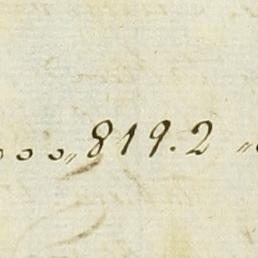 ooo„819.2„